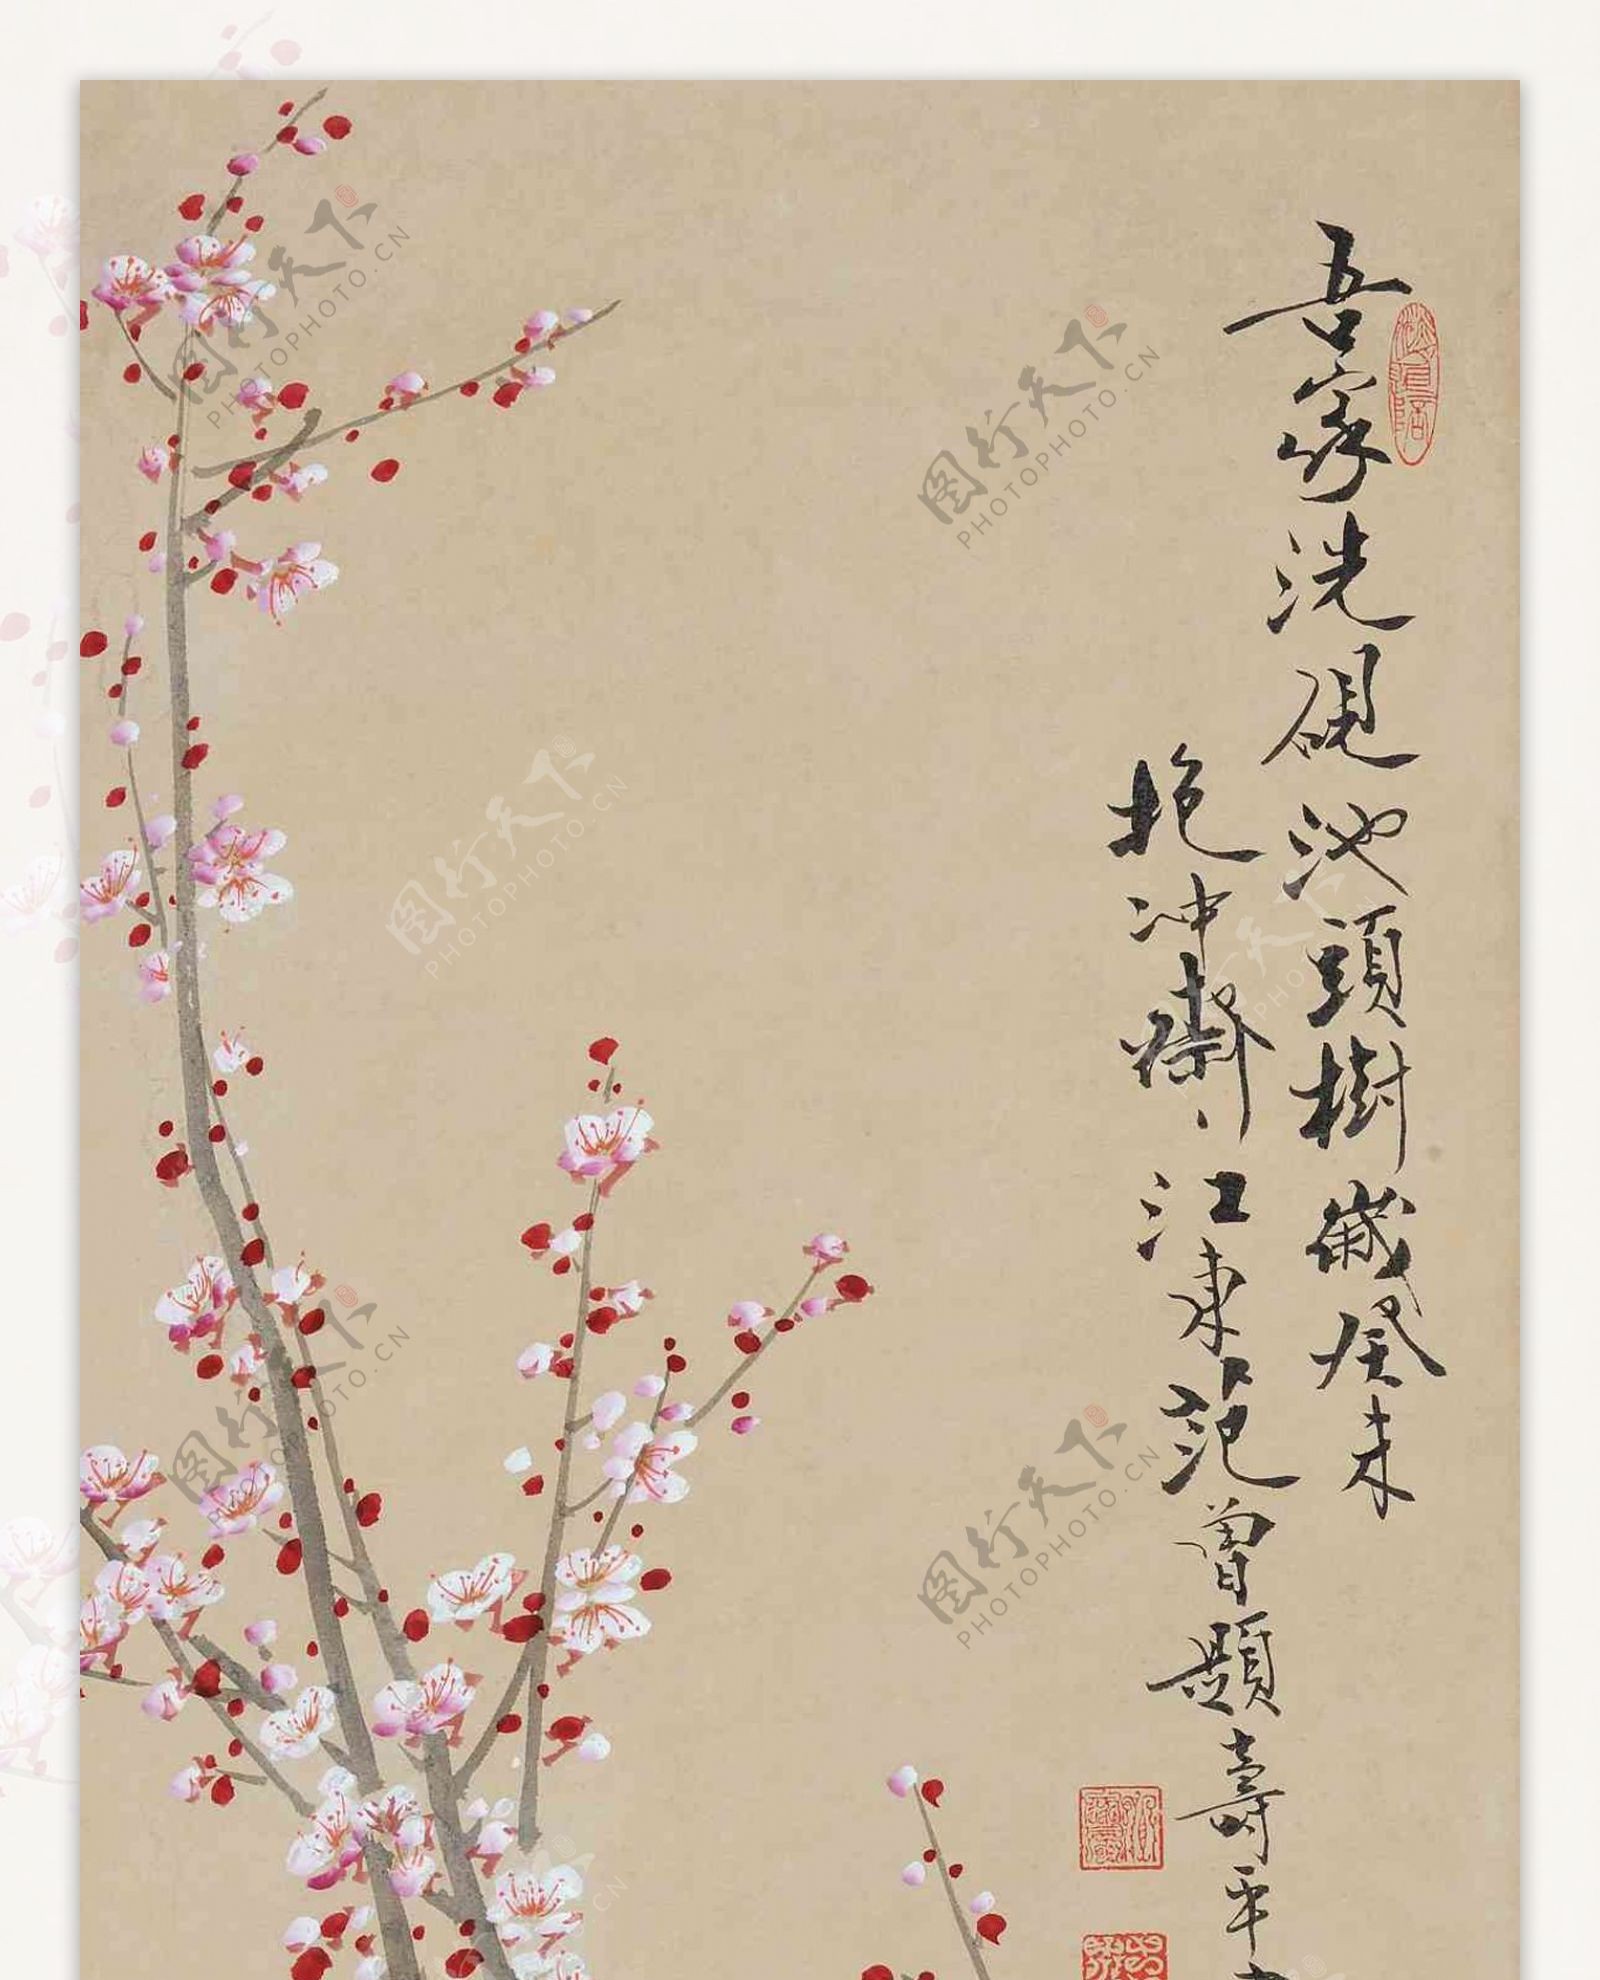 吾家洗硯池頭樹歲癸未
抱沖齋江東范曾題壽平
图行天下
PHOTOPHOTO.CN
图行天下
PHOTOPHOTO.CN
图行天下
PHOTOPHOTO.CN
图行天下
PHOTOPHOTO.CN
图行天下
PHOTOPHOTO.CN